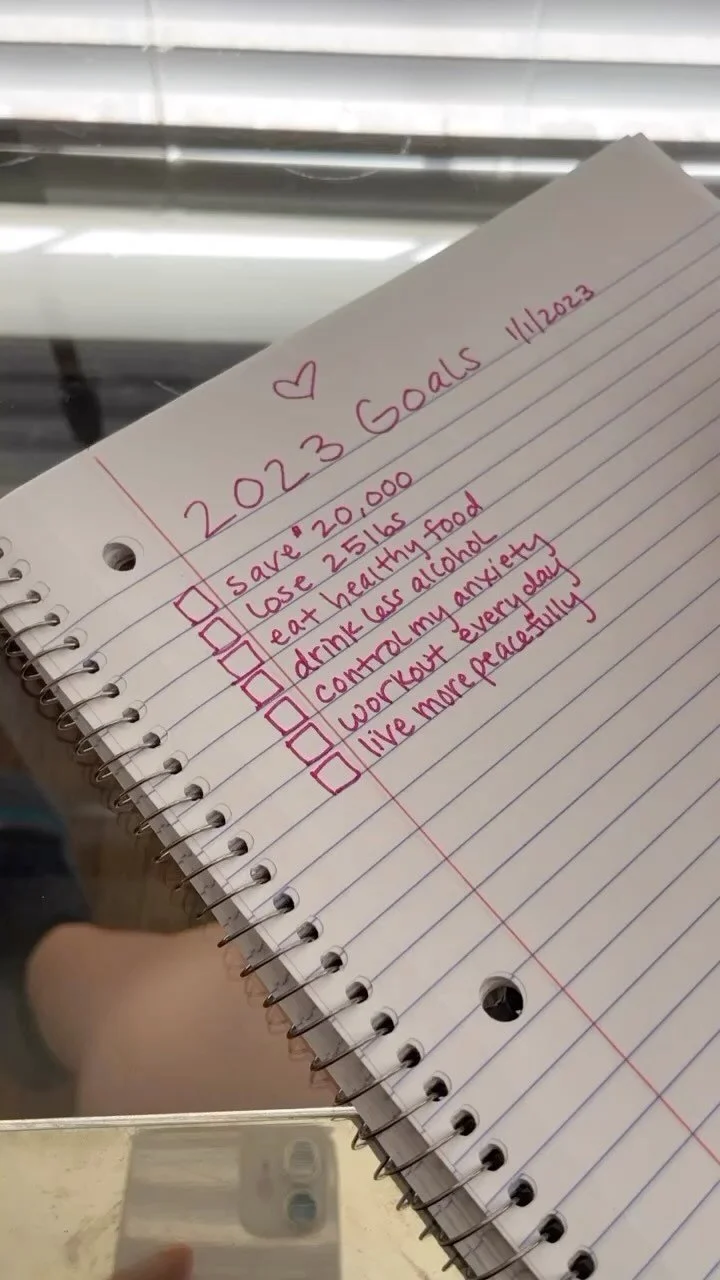 2023 Goals 1/1/2023
save $20,000
lose 25lbs
eat healthy food
drink less alcohol
control my anxiety
workout every day
live more peacefully